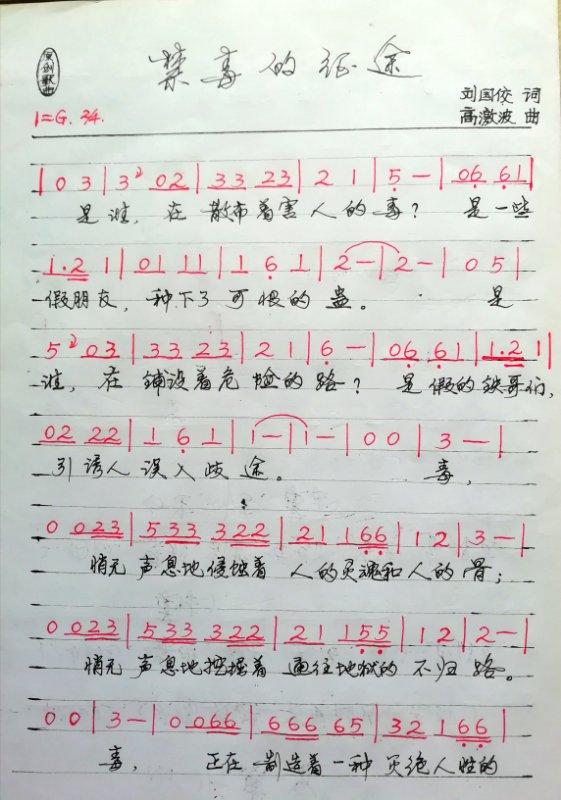 原创歌曲
禁毒的征途
刘国佼 词
1=G. 34. 高激波 曲
|0 3|3² 02|33 23|2 1|5 —|06 61|
是谁,在 散布着害人的毒? 是一些
1.2 1|01 11|1 6 1|2 —|2 —|0 5|
假朋友,种下了可恨的蛊。 是
5² 03|33 23|2 1|6 —|06 61|1.2 1|
谁,在铺设着危险的路? 是假的铁哥们,
02 22|1 6 1|1 —|1 —|0 0|3 —|
引诱人误入歧途。 毒,
0 023|533 322|21 166|1 2|3 —|
悄无声息地侵蚀着人的灵魂和人的骨;
0 023|533 322|21 155|1 2|2 —|
悄无声息地挖掘着通往地狱的不归路。
0 0|3 —|0 066|666 65|32 166|
毒, 正在制造着一种灭绝人性的